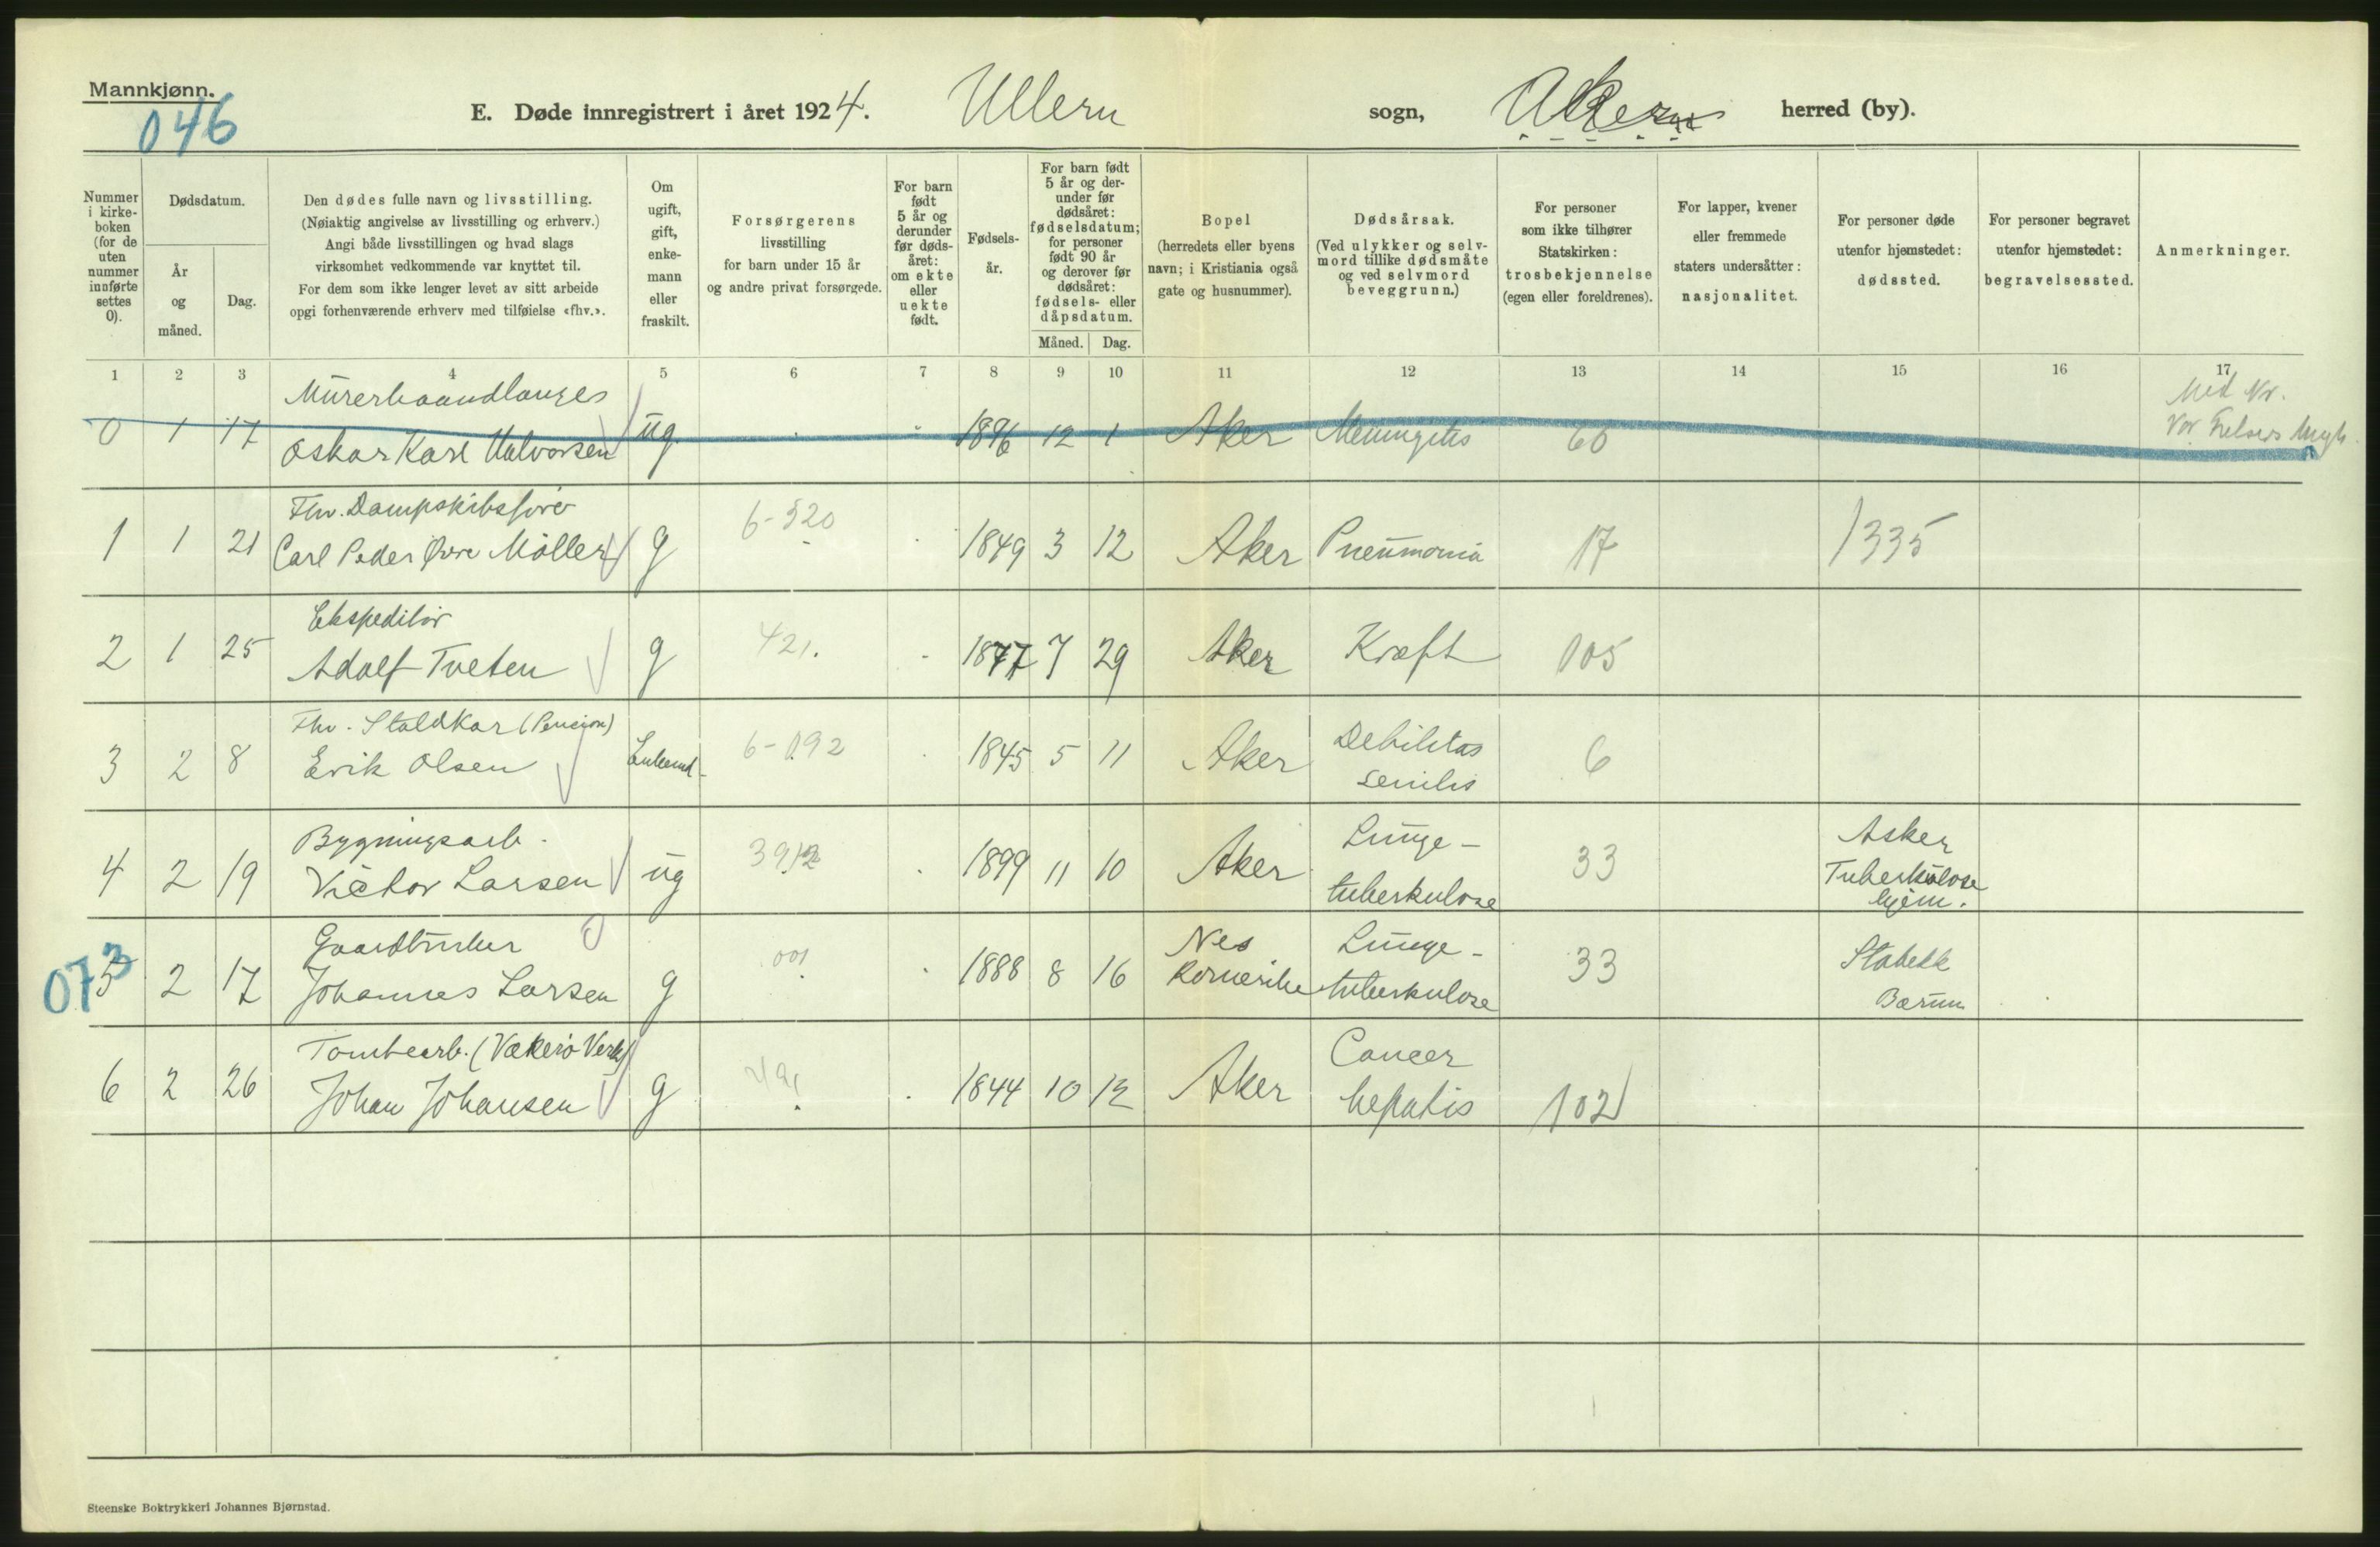 Mannkjønn.
046
E. Døde innregistrert i året 1924. Ullern sogn, Aker herred (by).
Nummer i kirke-boken (for de uten nummer innførte settes 0).
Dødsdatum.
År og måned.
Dag.
Den dødes fulle navn og livsstilling.
(Nøiaktig angivelse av livsstilling og erhverv.)
Angi både livsstillingen og hvad slags
virksomhet vedkommende var knyttet til.
For dem som ikke lenger levet av sitt arbeide
opgi forhenværende erhverv med tilføielse «fhv.».
Om ugift, gift, enke-mann eller fraskilt.
Forsørgerens
livsstilling
for barn under 15 år
og andre privat forsørgede.
For barn født 5 år og derunder før døds-året: om ekte eller uekte født.
Fødsels-år.
For barn født 5 år og der-under før dødsåret: fødselsdatum; for personer født 90 år og derover før dødsåret: fødsels- eller dåpsdatum.
Måned. Dag.
Bopel
(herredets eller byens
navn; i Kristiania også
gate og husnummer).
Dødsårsak.
(Ved ulykker og selv-
mord tillike dødsmåte
og ved selvmord
beveggrunn.)
For personer
som ikke tilhører
Statskirken:
trosbekjennelse
(egen eller foreldrenes).
For lapper, kvener
eller fremmede
staters undersåtter:
nasjonalitet.
For personer døde
utenfor hjemstedet:
dødssted.
For personer begravet
utenfor hjemstedet:
begravelsessted.
Anmerkninger.
1 2 3 4 5 6 7 8 9 10 11 12 13 14 15 16 17
Murerhaandlanger
Med Nr.
Vor Frelsers
0 1 17 Oskar Karl Halvorsen ug. 1896 12 1 Aker Meningitis 60
Fhv. Dampskibsfører
1 1 21 Carl Peder Møller g 6-520 1849 3 12 Aker Pneumonia 17 1335
Ekspeditør
2 1 25 Adolf Tveten g 421. 1877 7 29 Aker Kræft 105
Fhv. Staldkar (Pension)
3 2 8 Erik Olsen Enkemd. 6-092 1845 5 11 Aker Debilitas
senilis 6
Bygningsarb.
4 2 19 Victor Larsen ug 1899 11 10 Aker Lunge-
tuberkulose 33 Asker
Tuberkulose
hjem.
073
Gaardbruker
5 2 17 Johannes Larsen g 001 1888 8 16 Nes
Romerike Lunge-
tuberkulose 33 Stabekk
Bærum
Tomtearb. (Vækerø Verk)
6 2 26 Johan Johansen g 1844 10 12 Aker Cancer
hepatis 102
Steenske Boktrykkeri Johannes Bjørnstad.